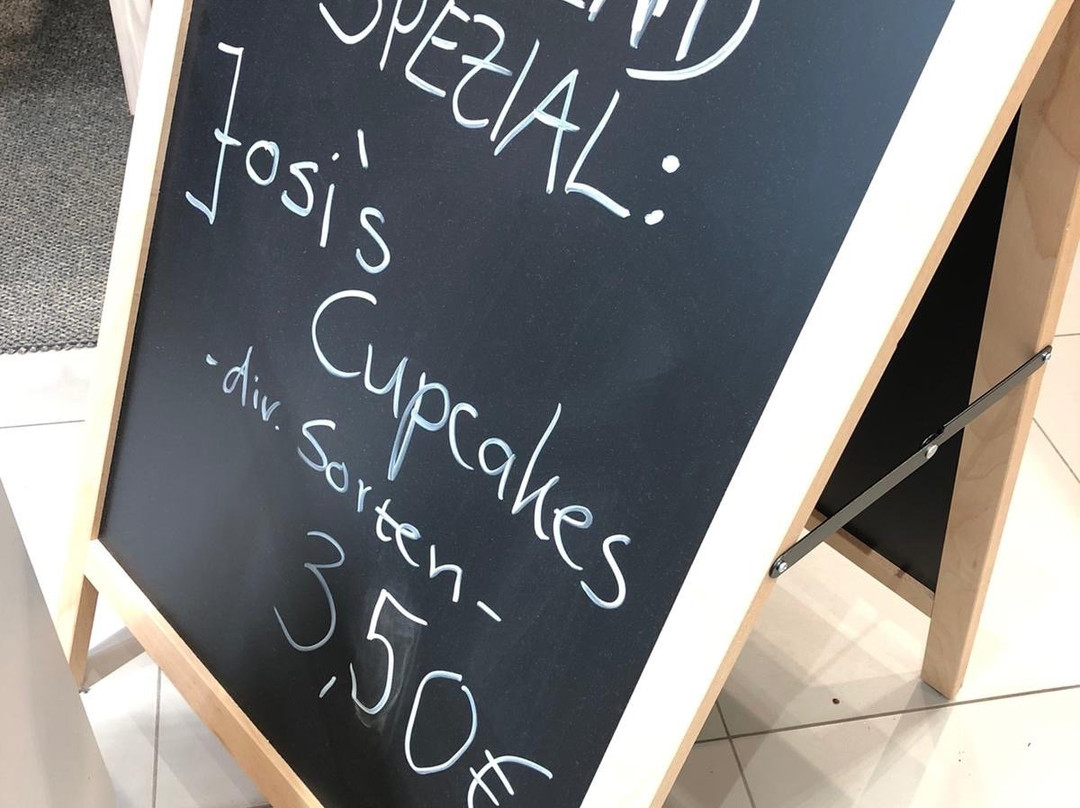 SPEZIAL:
Josi's
Cupcakes
-div. Sorten-
3,50€